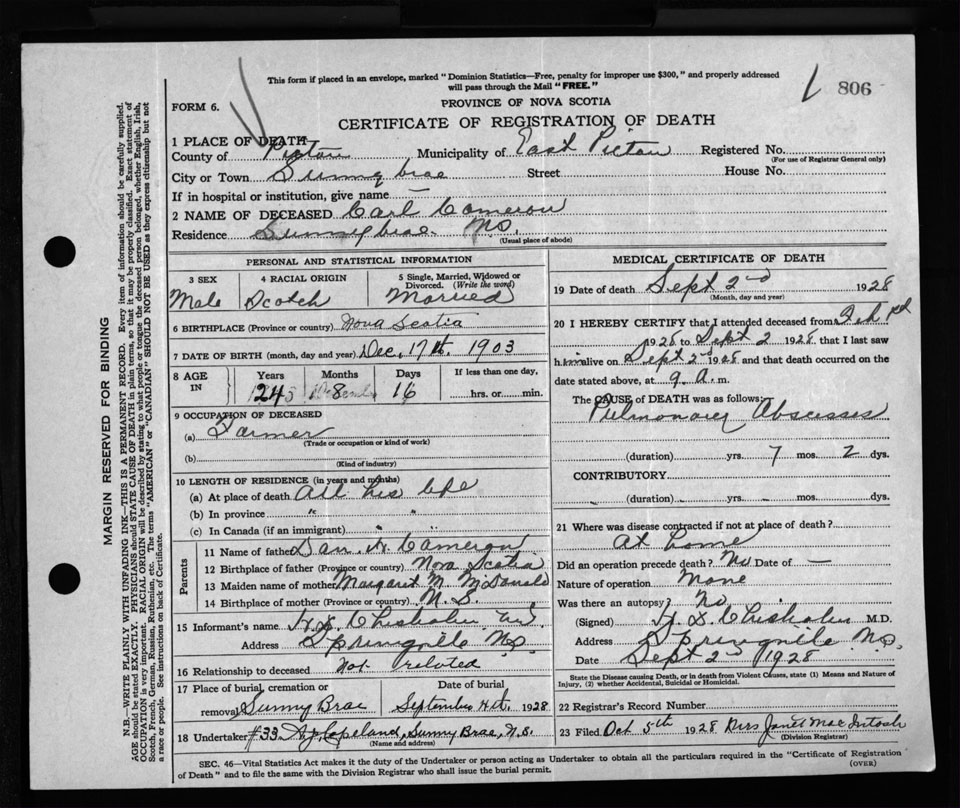 This form if placed in an envelope, marked "Dominion Statistics—Free, penalty for improper use $300," and properly addressed
will pass through the Mail "FREE."
806
FORM 6.
PROVINCE OF NOVA SCOTIA
CERTIFICATE OF REGISTRATION OF DEATH
1 PLACE OF DEATH
County of Pictou Municipality of East Pictou Registered No.
(For use of Registrar General only)
City or Town Sunny brae Street House No.
If in hospital or institution, give name —
2 NAME OF DECEASED Carl Cameron
Residence Sunnybrae NS.
(Usual place of abode)
PERSONAL AND STATISTICAL INFORMATION
3 SEX 4 RACIAL ORIGIN 5 Single, Married, Widowed or Divorced. (Write the word)
Male Scotch Married
6 BIRTHPLACE (Province or country) Nova Scotia
7 DATE OF BIRTH (month, day and year) Dec, 17th. 1903
8 AGE IN Years Months Days If less than one day,
24 8 16 hrs. or min.
9 OCCUPATION OF DECEASED
(a) Farmer
(Trade or occupation or kind of work)
(b)
(Kind of industry)
10 LENGTH OF RESIDENCE (in years and months)
(a) At place of death All his life
(b) In province "
(c) In Canada (if an immigrant) " "
Parents
11 Name of father Dan. Cameron
12 Birthplace of father (Province or country) Nova Scotia
13 Maiden name of mother Margaret M. McDonald
14 Birthplace of mother (Province or country) N.S.
15 Informant's name Chisholm
Address Springville NS.
16 Relationship to deceased Not related
17 Place of burial, cremation or Date of burial
removal Sunny Brae September 4th. 1928
18 Undertaker #33. Copeland, Sunny Brae, N.S.
(Name and address)
MEDICAL CERTIFICATE OF DEATH
19 Date of death Sept 2nd 1928
(Month, day and year)
20 I HEREBY CERTIFY that I attended deceased from Feb
1928 to Sept 2 1928 that I last saw
h im alive on Sept 2nd 1928 and that death occurred on the
date stated above, at 9 a. m.
The CAUSE of DEATH was as follows:
Pulmonary Abscesses
(duration) yrs. 7 mos. 2 dys.
CONTRIBUTORY
(duration) yrs. mos. dys.
21 Where was disease contracted if not at place of death?
At home
Did an operation precede death? No Date of —
Nature of operation None
Was there an autopsy? No
(Signed) Chisholm M.D.
Address Springville NS.
Date Sept 2nd 1928
State the Disease causing Death, or in death from Violent Causes, state (1) Means and Nature of
Injury, (2) whether Accidental, Suicidal or Homicidal.
22 Registrar's Record Number
23 Filed Oct 5th 1928 Mrs Janet MacIntosh
(Division Registrar)
SEC. 46—Vital Statistics Act makes it the duty of the Undertaker or person acting as Undertaker to obtain all the particulars required in the "Certificate of Registration
of Death" and to file the same with the Division Registrar who shall issue the burial permit. (OVER)
MARGIN RESERVED FOR BINDING
N.B.—WRITE PLAINLY WITH UNFADING INK—THIS IS A PERMANENT RECORD. Every item of information should be carefully supplied.
AGE should be stated EXACTLY. PHYSICIANS should STATE CAUSE OF DEATH in plain terms, so that it may be properly classified. Exact statement of
OCCUPATION is very important. RACIAL ORIGIN will be described by stating to what people or tongue the deceased person belonged, whether English, Irish,
Scotch, French, German, Russian, Ruthenian, etc. The terms "AMERICAN" or "CANADIAN" SHOULD NOT BE USED as they express citizenship but not
a race or people. See instructions on back of Certificate.